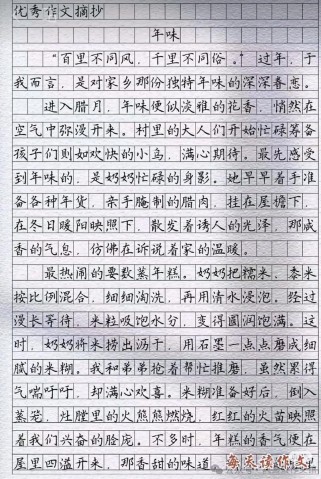 优秀作文摘抄
年味
“百里不同风，千里不同俗。”过年，于
我而言，是对家乡那份独特年味的深深眷恋。
进入腊月，年味便似淡雅的花香，悄然在
空气中弥漫开来。村里的大人们开始忙碌筹备
孩子们则如欢快的小鸟，满心期待。最先感受
到年味的，是奶奶忙碌的身影。她早早着手准
备各种年货，亲手腌制的腊肉，挂在屋檐下，
在冬日暖阳映照下，散发着诱人的光泽，那咸
香的气息，仿佛在诉说着家的温暖。
最热闹的要数蒸年糕。奶奶把糯米、黍米
按比例混合，细细淘洗，再用清水浸泡。经过
漫长等待，米粒吸饱水分，变得圆润饱满。这
时，奶奶将米捞出沥干，用石墨一点点磨成细
腻的米糊。我和弟弟抢着帮忙推磨，虽然累得
气喘吁吁，却满心欢喜。米糊准备好后，倒入
蒸笼，灶膛里的火熊熊燃烧，红红的火苗映照
着我们兴奋的脸庞。不多时，年糕的香气便在
屋里四溢开来，那香甜的味道
每天读作文